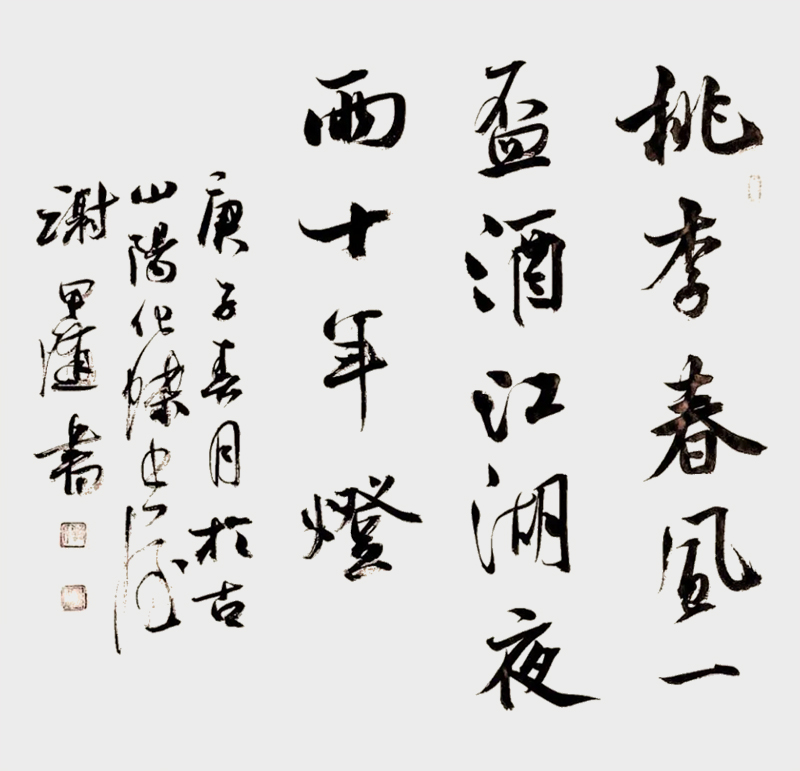 桃李春風一
盃酒江湖夜
雨十年燈
庚子春月於古
山陽
謝甲 書